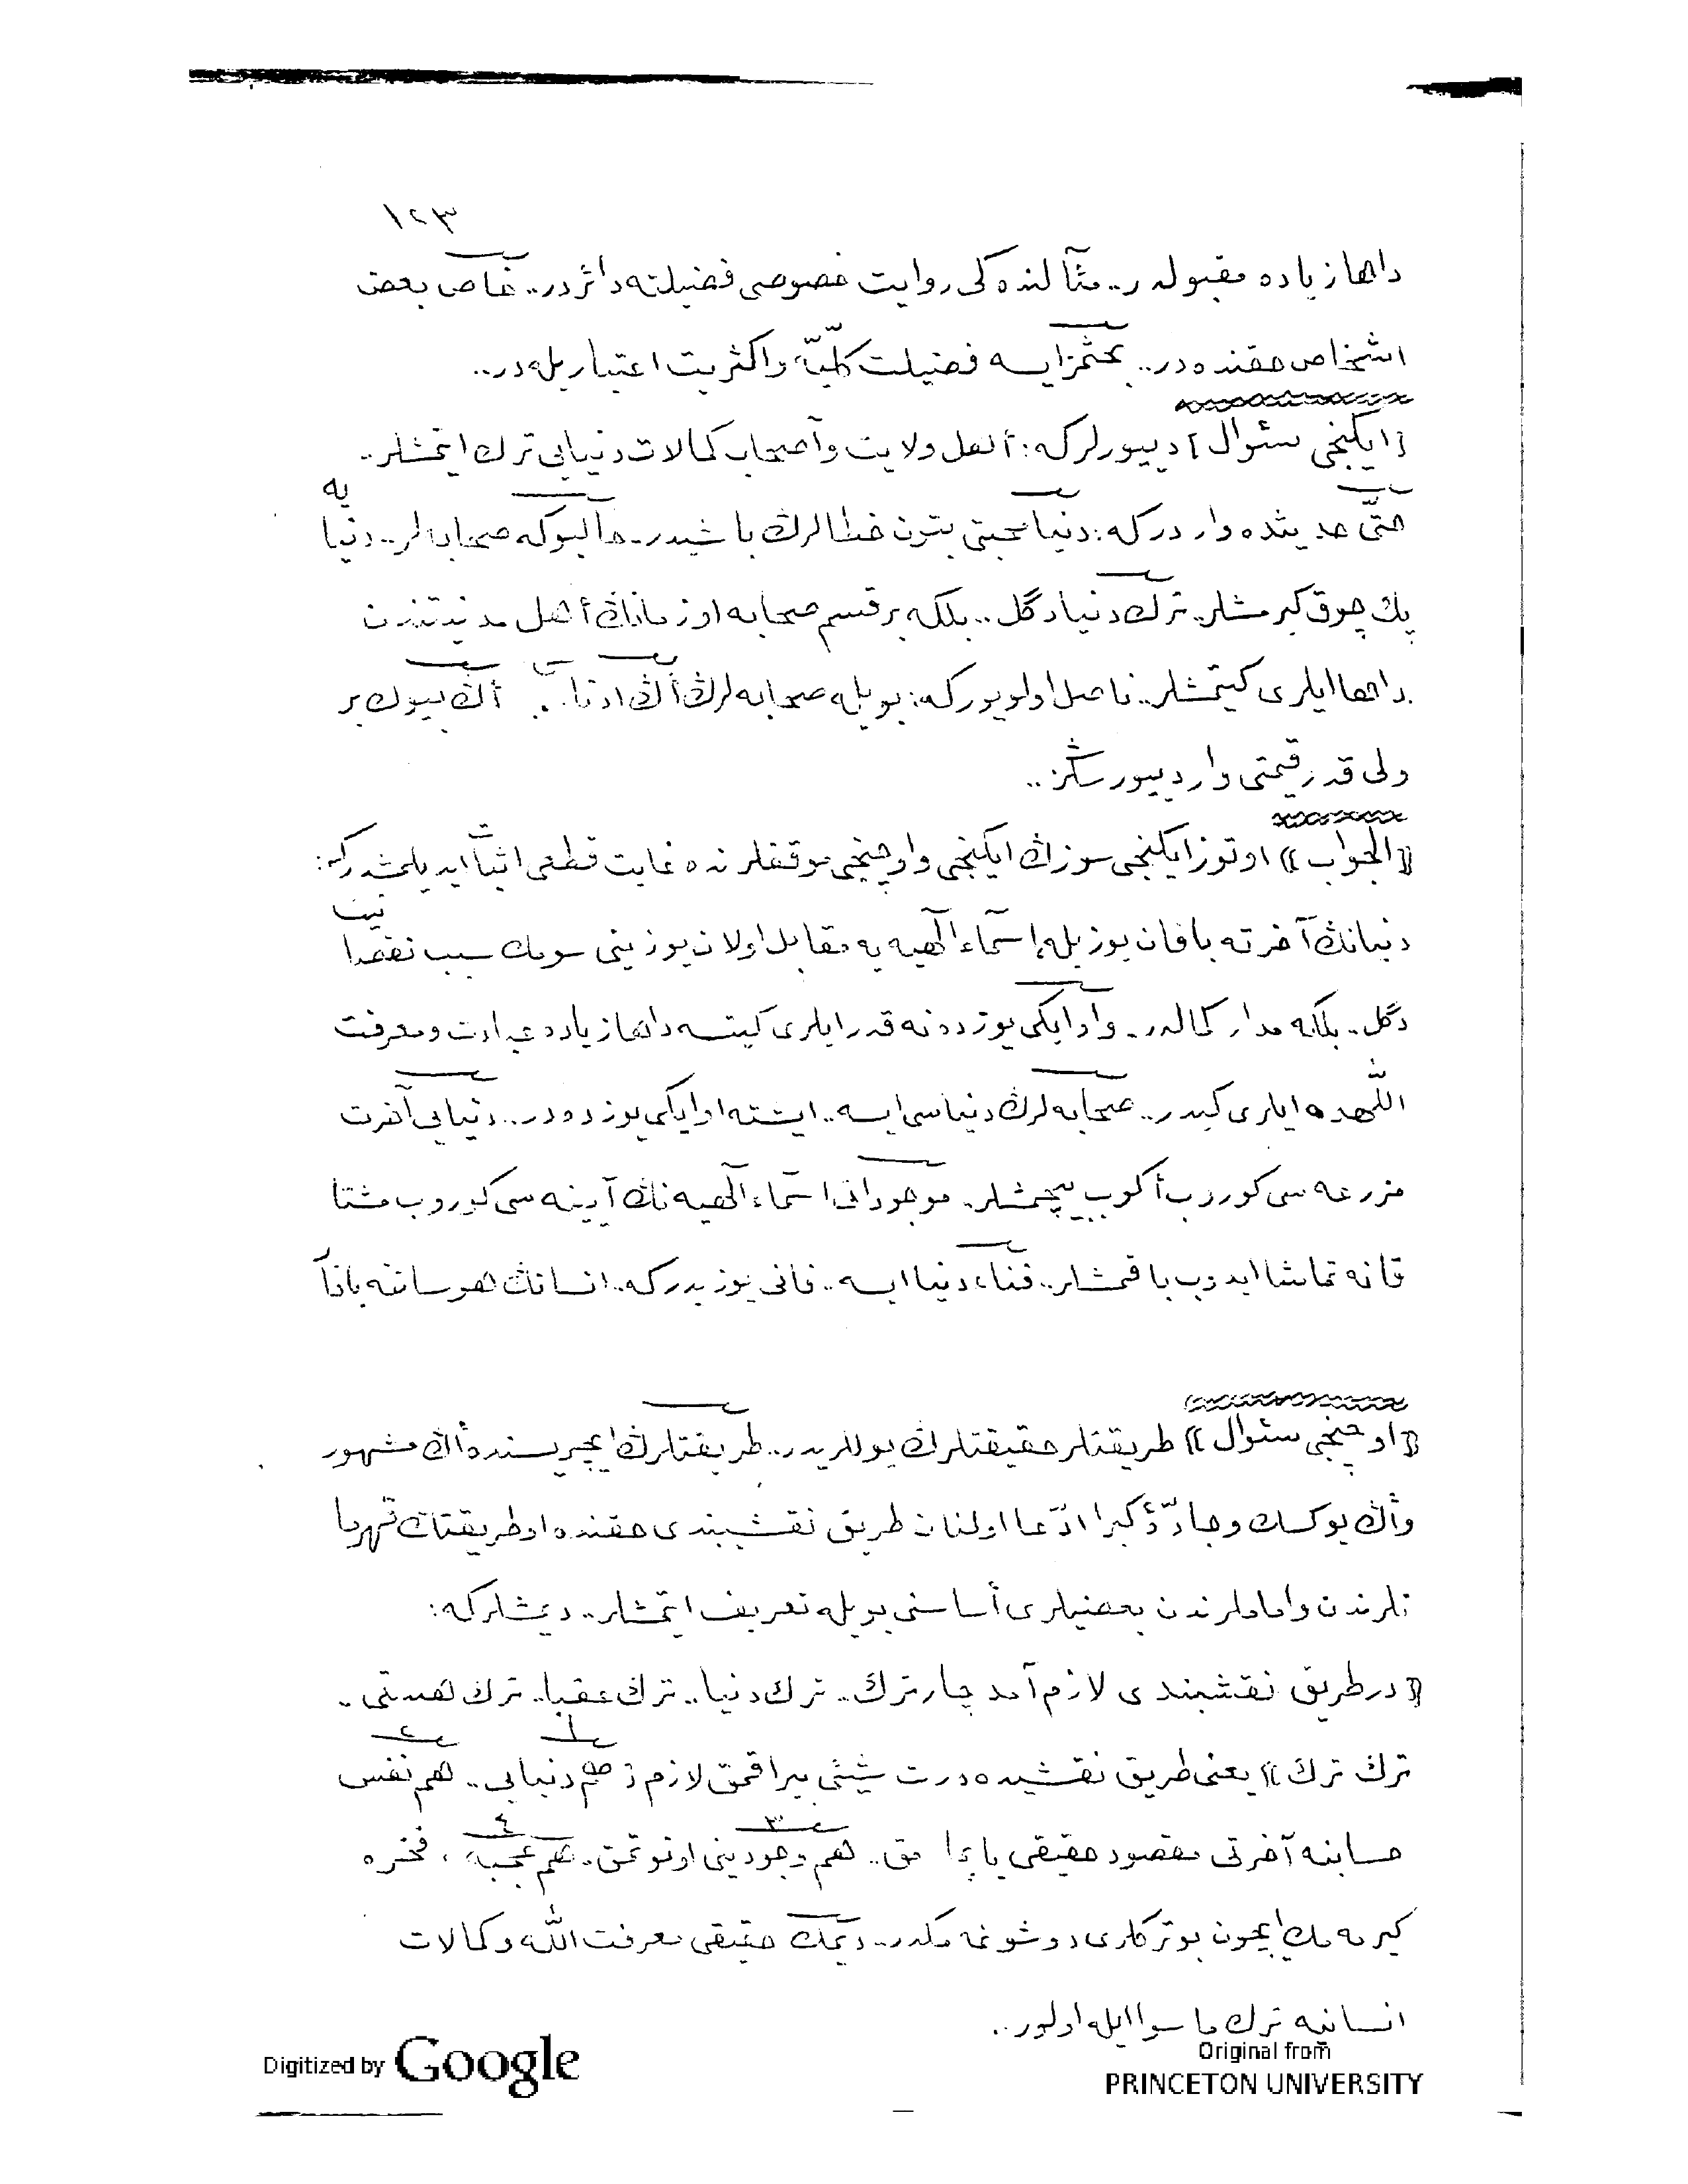 ١٢٣
داها زياده مقبولدر.. مثالنده كى روايت خصوصى فضيلته دائردر.. خاص بعض
اشخاص حقنده در.. بحثمز ايسه فضيلت كليّه واكثريت اعتباريله در..
[ايكنجى سئوال] دييورلركه: أهل ولايت وأصحاب كمالات دنيايى ترك ايتمشلر..
حتّى حديثده واردركه: دنيا محبتى بتون خطالرڭ باشيدر.. حالبوكه صحابه لر.. دنيا يه
پك چوق كيرمشلر.. ترك دنيا دگل.. بلكه بر قسم صحابه او زمانڭ أهل مدنيتندن
داها ايلرى كيتمشلر.. ناصل اولويوركه: بويله صحابه لرڭ أڭ ادنا سى.. أڭ بيوك بر
ولى قدر قيمتى وار دييورسڭز..
«الجواب» اوتوز ايكنجى سوزڭ ايكنجى واوچنجى موقفلرنده غايت قطعى اثبات ايديلمشدركه:
دنيانڭ آخرته باقان يوزيله إسماء الٓهيه يه مقابل اولان يوزينى سومك سبب نقصانيت
دگل.. بلكه مدار كمالدر.. وأو ايكى يوزده نه قدر ايلرى كيتسه داها زياده عبادت ومعرفت
اللّهده ايلرى كيدر.. صحابه لرڭ دنياسى ايسه.. ايشته او ايكى يوزده در.. دنيايى آخرت
مزرعه سى كوروب أكوب بيچمشلر.. موجوداتى اسماء الٓهيه نڭ آيينه سى كوروب مشتا
قانه تماشا ايدوب باقمشلر.. فناء دنيا ايسه.. فانى يوزيدركه.. انسانڭ هوساتنه باقار
«اوچنجى سئوال» طريقتلر حقيقتلرڭ يوللريدر.. طريقتلرڭ ايچريسنده أڭ مشهور
وأڭ يوكسك وجادّۀ كبرا ادّعا اولنان طريق نقشبندى حقنده او طريقتڭ قهرما
نلرندن واماملرندن بعضيلرى أساسنى بويله تعريف ايتمشلر.. ديمشلركه:
«در طريق نقشبندى لازم آمد چار ترك.. ترك دنيا.. ترك عقبا.. ترك هستى..
ترك ترك» يعنى طريق نقشيده درت شيئى بيراقمق لازم ١ هم دنيايى.. ٢ هم نفس
حسابنه آخرتى مقصود حقيقى ياپمامق.. ٣ هم وجودينى اونوتمق.. ٤ هم عجبه ، فخره
كيرمه مك ايچون بو تركلرى دوشونمه مكدر.. ديمك حقيقى معرفت اللّه وكمالات
انسانيه ترك ما سوا ايله اولور..
Digitized by Google
Original from
PRINCETON UNIVERSITY